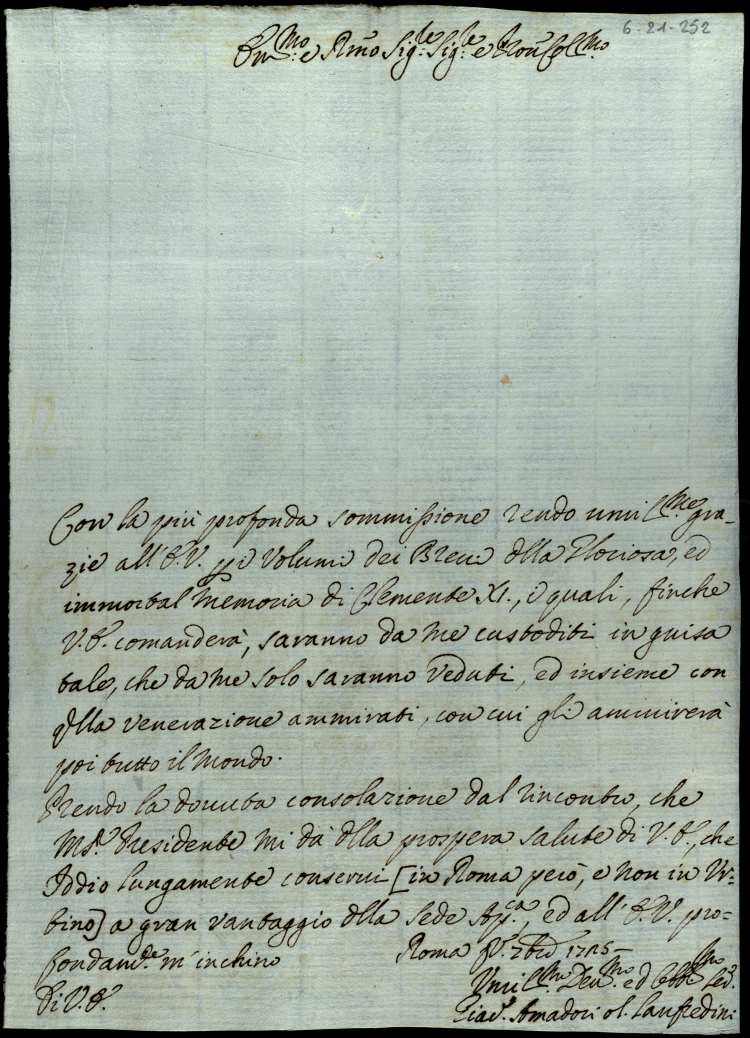 6-21-252
Em.mo e Rmo Sig.re Sig.re e Pron Col.mo
Con la più profonda sommissione rendo umil.me gra-
zie all'E.V. pe' Volumi dei Brevi dlla Gloriosa, ed
immortal Memoria di Clemente XI., i quali, finche
V.E. comanderà, saranno da me custoditi in guisa
tale, che da me solo saranno veduti, ed insieme con
qlla venerazione ammirati, con cui gli ammirerà
poi tutto il Mondo.
Prendo la dovuta consolazione dal rincontro, che
Mr. Presidente mi dà dlla prospera salute di V.E., che
Iddio lungamente conservi [in Roma però, e non in Ur-
bino] a gran vantaggio dlla Sede Ap.ca, ed all'E.V. pro-
fondam.te m'inchino
Roma p.o 7bre 1725
Di V.E.
Umil.mo Dev.mo ed Obb.mo Ser.
Giac. Amadori ol. Lanfredini